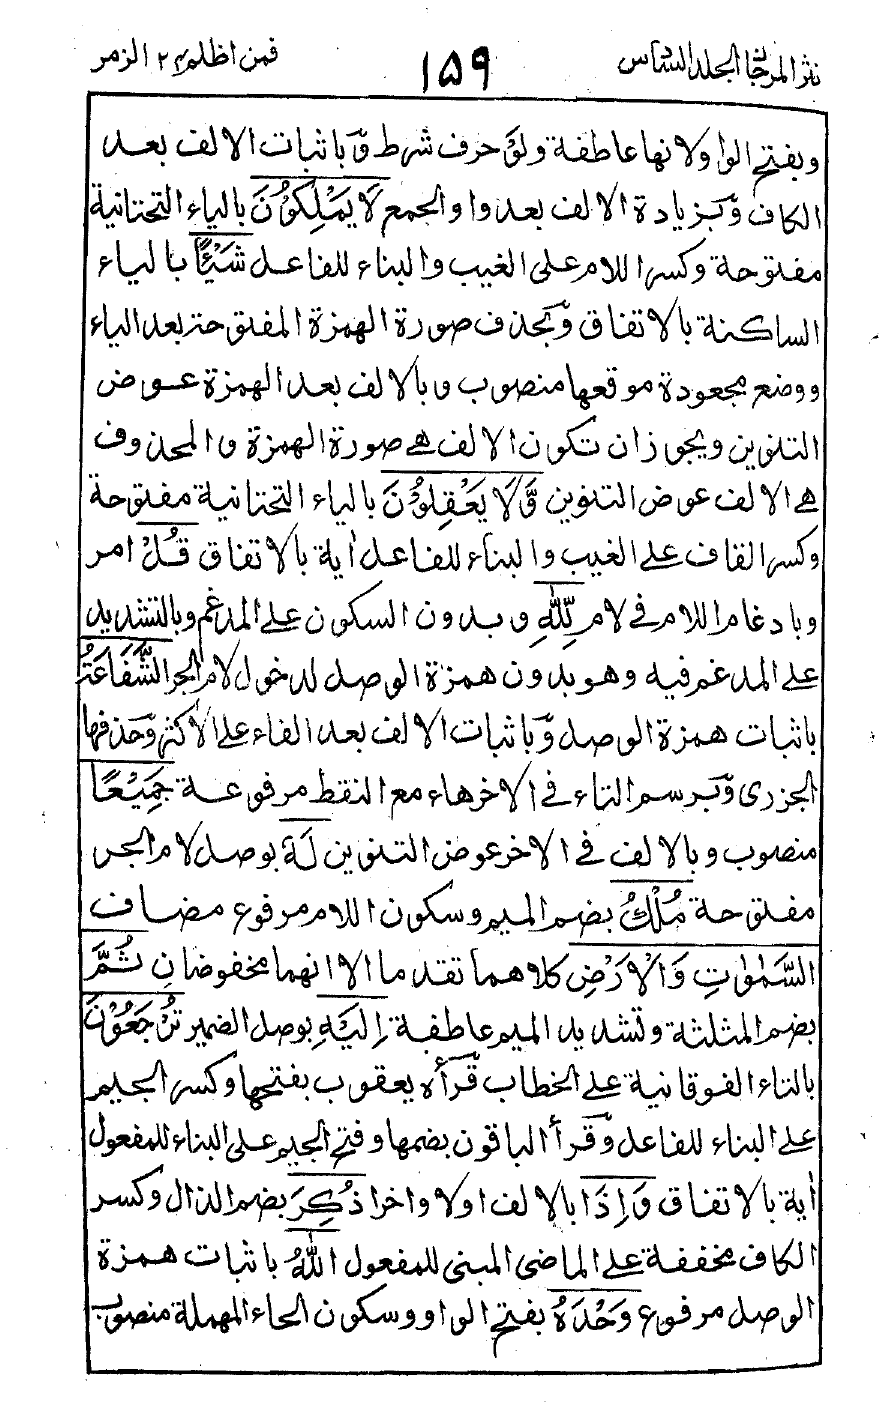 نثر المرجان الجلد السادس
١٥٩
فمن اظلم ٢٤ الزمر
وبفتح الواو لانها عاطفة ولَوْ حرف شرط وّباثبات الالف بعد
الكاف وّبزيادة الالف بعد واو الجمع لَا يَمْلِكُوْنَ بالياء التحتانية
مفتوحة وكسر اللام على الغيب والبناء للفاعل شَيْئًا بالياء
الساكنة بالاتفاق وّبحذف صورة الهمزة المفتوحة بعد الياء
ووضع مجعودة موقعها منصوب وبالالف بعد الهمزة عوض
التنوين ويجوز ان تكون الالف هے صورة الهمزة والمحذوف
هے الالف عوض التنوين وَّلَا يَعْقِلُوْنَ بالياء التحتانية مفتوحة
وكسر القاف على الغيب والبناء للفاعل اٰية بالاتفاق قُلْ امر
وبادغام اللام في لام لِّلّٰهِ وبدون السكون على المدغم وبالتشديد
على المدغم فيه وهو بدون همزة الوصل لدخول لام الجر الشَّفَاعَةُ
باثبات همزة الوصل وّباثبات الالف بعد الفاء على الاكثر وّحذفها
الجزرى وّبرسم التاء في الاخر هاء مع النقط مرفوعة جَمِيْعًا
منصوب وبالالف في الاخر عوض التنوين لَهٗ بوصل لام الجر
مفتوحة مُلْكُ بضم الميم وسكون اللام مرفوع مضاف
السَّمٰوٰتِ وَالْاَرْضِ كلاهما تقدما الا انهما مخفوضان ثُمَّ
بضم المثلثة وتشديد الميم عاطفة اِلَيْهِ بوصل الضمير تُرْجَعُوْنَ
بالتاء الفوقانية على الخطاب قرأه يعقوب بفتحها وكسر الجيم
على البناء للفاعل وّقرأ الباقون بضمها وفتح الجيم على البناء للمفعول
اٰية بالاتفاق وَاِذَا بالالف اولا واخرا ذُكِرَ بضم الذال وكسر
الكاف مخففة على الماضى المبنى للمفعول اللّٰهُ باثبات همزة
الوصل مرفوع وَحْدَهٗ بفتح الواو وسكون الحاء المهملة منصوب